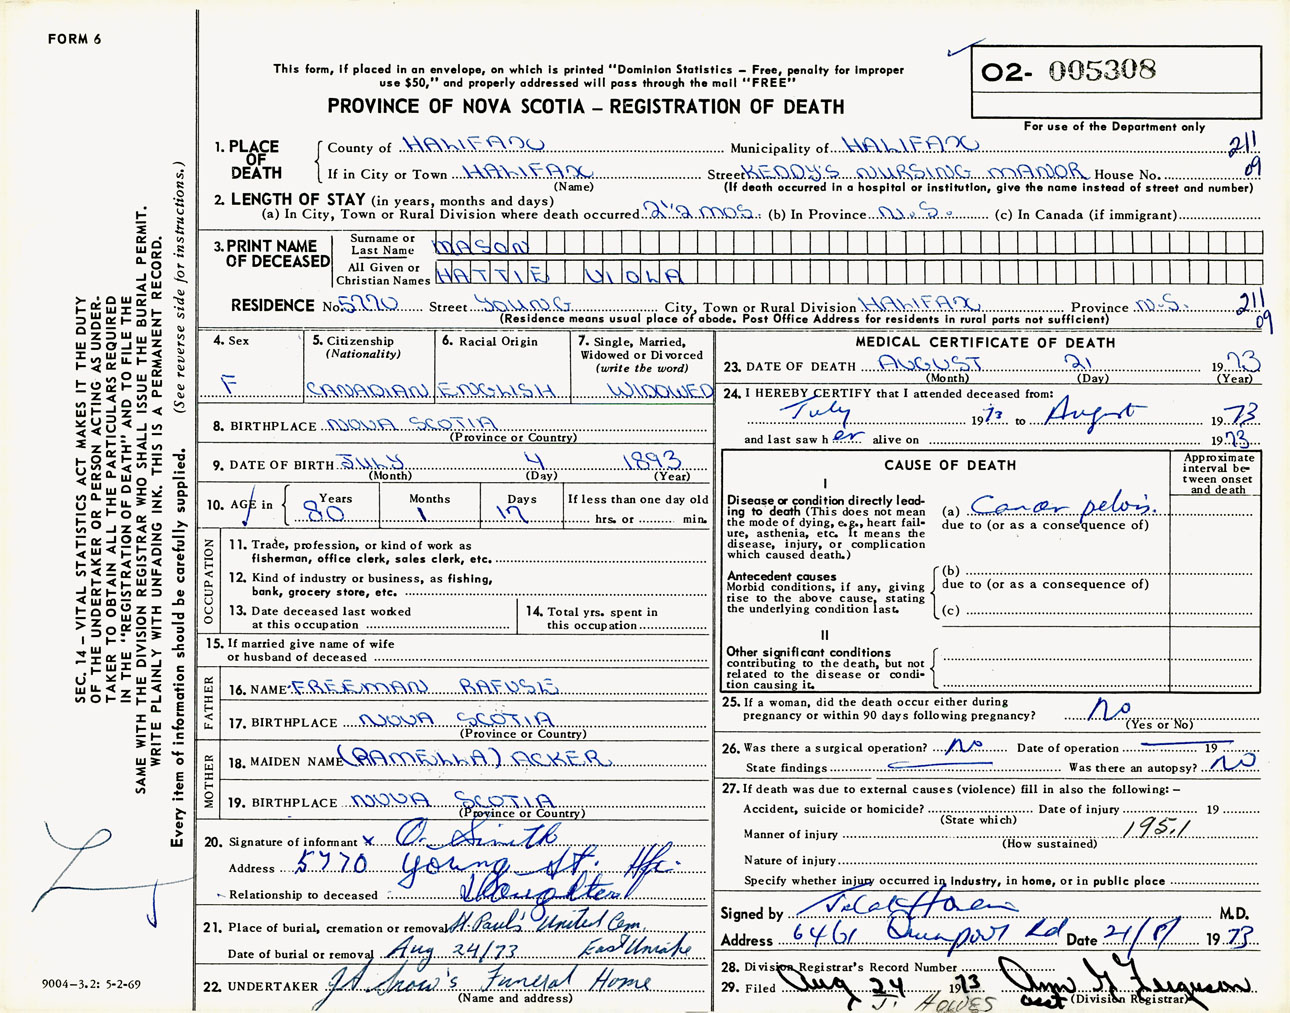 FORM 6
This form, if placed in an envelope, on which is printed "Dominion Statistics – Free, penalty for improper
use $50," and properly addressed will pass through the mail "FREE"
PROVINCE OF NOVA SCOTIA – REGISTRATION OF DEATH
02- 005308
For use of the Department only
SEC. 14 – VITAL STATISTICS ACT MAKES IT THE DUTY
OF THE UNDERTAKER OR PERSON ACTING AS UNDER-
TAKER TO OBTAIN ALL THE PARTICULARS REQUIRED
IN THE "REGISTRATION OF DEATH" AND TO FILE THE
SAME WITH THE DIVISION REGISTRAR WHO SHALL ISSUE THE BURIAL PERMIT.
WRITE PLAINLY WITH UNFADING INK. THIS IS A PERMANENT RECORD.
Every item of information should be carefully supplied. (See reverse side for instructions.)
1. PLACE OF DEATH
County of HALIFAX Municipality of HALIFAX 211
If in City or Town HALIFAX Street KEDDY'S NURSING MANOR House No. 09
(Name) (If death occurred in a hospital or institution, give the name instead of street and number)
2. LENGTH OF STAY (in years, months and days)
(a) In City, Town or Rural Division where death occurred 2½ MOS. (b) In Province N.S. (c) In Canada (if immigrant)
3. PRINT NAME OF DECEASED
Surname or Last Name MASON
All Given or Christian Names HATTIE VIOLA
RESIDENCE No. 5770 Street YOUNG City, Town or Rural Division HALIFAX Province N.S. 211
(Residence means usual place of abode. Post Office Address for residents in rural parts not sufficient) 09
4. Sex F
5. Citizenship (Nationality) CANADIAN
6. Racial Origin ENGLISH
7. Single, Married, Widowed or Divorced (write the word) WIDOWED
8. BIRTHPLACE NOVA SCOTIA
(Province or Country)
9. DATE OF BIRTH JULY 4 1893
(Month) (Day) (Year)
10. AGE in Years 80 Months 1 Days 17 If less than one day old hrs. or min.
OCCUPATION
11. Trade, profession, or kind of work as
fisherman, office clerk, sales clerk, etc.
12. Kind of industry or business, as fishing,
bank, grocery store, etc.
13. Date deceased last worked at this occupation
14. Total yrs. spent in this occupation
15. If married give name of wife
or husband of deceased
FATHER
16. NAME FREEMAN RAFUSE
17. BIRTHPLACE NOVA SCOTIA
(Province or Country)
MOTHER
18. MAIDEN NAME (PAMELLA) ACKER
19. BIRTHPLACE NOVA SCOTIA
(Province or Country)
20. Signature of informant x O. Smith
Address 5770 Young St. Hfx.
Relationship to deceased Daughter
21. Place of burial, cremation or removal St. Paul's United Cem.
Date of burial or removal Aug 24/73 East
22. UNDERTAKER J.A. Snow's Funeral Home
(Name and address)
MEDICAL CERTIFICATE OF DEATH
23. DATE OF DEATH AUGUST 21 1973
(Month) (Day) (Year)
24. I HEREBY CERTIFY that I attended deceased from:
July 1973 to August 1973
and last saw her alive on 1973
CAUSE OF DEATH
Approximate interval between onset and death
I
Disease or condition directly lead-
ing to death (This does not mean
the mode of dying, e.g., heart fail-
ure, asthenia, etc. It means the
disease, injury, or complication
which caused death.)
(a) Cancer pelvis.
due to (or as a consequence of)
Antecedent causes
Morbid conditions, if any, giving
rise to the above cause, stating
the underlying condition last.
(b)
due to (or as a consequence of)
(c)
II
Other significant conditions
contributing to the death, but not
related to the disease or condi-
tion causing it.
25. If a woman, did the death occur either during
pregnancy or within 90 days following pregnancy? No
(Yes or No)
26. Was there a surgical operation? No Date of operation 19
State findings Was there an autopsy? No
27. If death was due to external causes (violence) fill in also the following: –
Accident, suicide or homicide? Date of injury 19
(State which)
Manner of injury 195.1
(How sustained)
Nature of injury
Specify whether injury occurred in Industry, in home, or in public place
Signed by M.D.
Address 6461 Rd Date 21/8/ 1973
28. Division Registrar's Record Number
29. Filed Aug 24 1973 Ann G Ferguson
J. HOWES asst (Division Registrar)
9004-3.2: 5-2-69